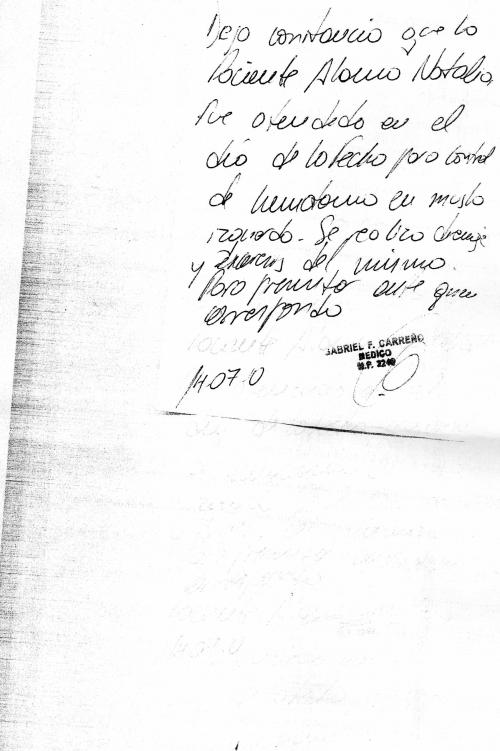 Dejo constancia que la
Paciente Alamo Natalia
fue atendida en el
día de la fecha para control
de hematoma en muslo
izquierdo. Se realizo drenaje
y del mismo.
Para presentar ante quien
corresponda
GABRIEL F. CARREÑO
MEDICO
M.P. 2240
14.07.0